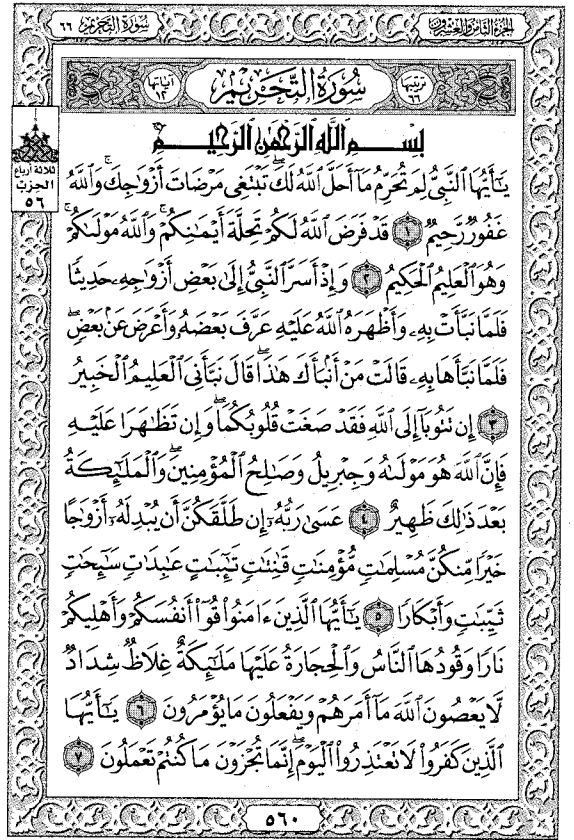 سُورَةُ التَّحْرِيمِ ٦٦
الجُزءُ الثَّامِنُ وَالعِشْرُونَ
ترتيبها ٦٦
سُورَةُ التَّحْرِيمِ
آياتها ١٢
بِسْمِ ٱللَّهِ ٱلرَّحْمَٰنِ ٱلرَّحِيمِ
يَـٰٓأَيُّهَا ٱلنَّبِىُّ لِمَ تُحَرِّمُ مَآ أَحَلَّ ٱللَّهُ لَكَ ۖ تَبْتَغِى مَرْضَاتَ أَزْوَٰجِكَ ۚ وَٱللَّهُ
غَفُورٌ رَّحِيمٌ ١ قَدْ فَرَضَ ٱللَّهُ لَكُمْ تَحِلَّةَ أَيْمَـٰنِكُمْ ۚ وَٱللَّهُ مَوْلَىٰكُمْ ۖ
وَهُوَ ٱلْعَلِيمُ ٱلْحَكِيمُ ٢ وَإِذْ أَسَرَّ ٱلنَّبِىُّ إِلَىٰ بَعْضِ أَزْوَٰجِهِۦ حَدِيثًا
فَلَمَّا نَبَّأَتْ بِهِۦ وَأَظْهَرَهُ ٱللَّهُ عَلَيْهِ عَرَّفَ بَعْضَهُۥ وَأَعْرَضَ عَنۢ بَعْضٍ ۖ
فَلَمَّا نَبَّأَهَا بِهِۦ قَالَتْ مَنْ أَنۢبَأَكَ هَـٰذَا ۖ قَالَ نَبَّأَنِىَ ٱلْعَلِيمُ ٱلْخَبِيرُ
٣ إِن تَتُوبَآ إِلَى ٱللَّهِ فَقَدْ صَغَتْ قُلُوبُكُمَا ۖ وَإِن تَظَـٰهَرَا عَلَيْهِ
فَإِنَّ ٱللَّهَ هُوَ مَوْلَىٰهُ وَجِبْرِيلُ وَصَـٰلِحُ ٱلْمُؤْمِنِينَ ۖ وَٱلْمَلَـٰٓئِكَةُ
بَعْدَ ذَٰلِكَ ظَهِيرٌ ٤ عَسَىٰ رَبُّهُۥٓ إِن طَلَّقَكُنَّ أَن يُبْدِلَهُۥٓ أَزْوَٰجًا
خَيْرًا مِّنكُنَّ مُسْلِمَـٰتٍ مُّؤْمِنَـٰتٍ قَـٰنِتَـٰتٍ تَـٰٓئِبَـٰتٍ عَـٰبِدَٰتٍ سَـٰٓئِحَـٰتٍ
ثَيِّبَـٰتٍ وَأَبْكَارًا ٥ يَـٰٓأَيُّهَا ٱلَّذِينَ ءَامَنُوا۟ قُوٓا۟ أَنفُسَكُمْ وَأَهْلِيكُمْ
نَارًا وَقُودُهَا ٱلنَّاسُ وَٱلْحِجَارَةُ عَلَيْهَا مَلَـٰٓئِكَةٌ غِلَاظٌ شِدَادٌ
لَّا يَعْصُونَ ٱللَّهَ مَآ أَمَرَهُمْ وَيَفْعَلُونَ مَا يُؤْمَرُونَ ٦ يَـٰٓأَيُّهَا
ٱلَّذِينَ كَفَرُوا۟ لَا تَعْتَذِرُوا۟ ٱلْيَوْمَ ۖ إِنَّمَا تُجْزَوْنَ مَا كُنتُمْ تَعْمَلُونَ ٧
ثلاثة أرباع
الحزب
٥٦
٥٦٠